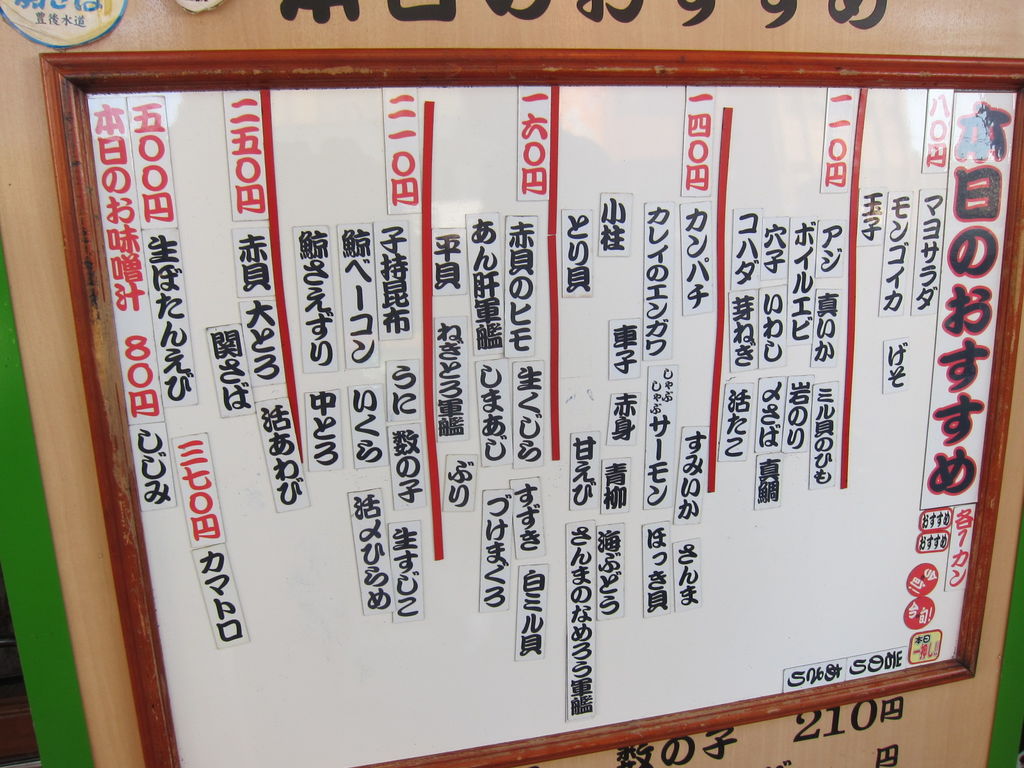 本日のおすすめ
豊後水道
本日のおすすめ
各一カン
おすすめ
おすすめ
今旬!
今旬!
本日一押し!!
八〇円
マヨサラダ
モンゴイカ げそ
玉子
一一〇円
アジ 真いか ミル貝のひも
ボイルエビ 岩のり
穴子 いわし 〆さば 真鯛
コハダ 芽ねぎ 活たこ
一四〇円
カンパチ すみいか さんま
カレイのエンガワ しゃぶしゃぶサーモン ほっき貝
小柱 車子 赤身 青柳 海ぶどう
とり貝 甘えび さんまのなめろう軍艦
一六〇円
赤貝のヒモ 生くじら すずき 白ミル貝
あん肝軍艦 しまあじ づけまぐろ
平貝 ねぎとろ軍艦 ぶり
二一〇円
子持昆布 うに 数の子 生すじこ
鯨ベーコン いくら 活〆ひらめ
鯨さえずり 中とろ
二五〇円
赤貝 大とろ 活あわび
関さば
三七〇円 カマトロ
五〇〇円 生ぼたんえび
本日のお味噌汁 80円 しじみ
岩のり
数の子 210円
円